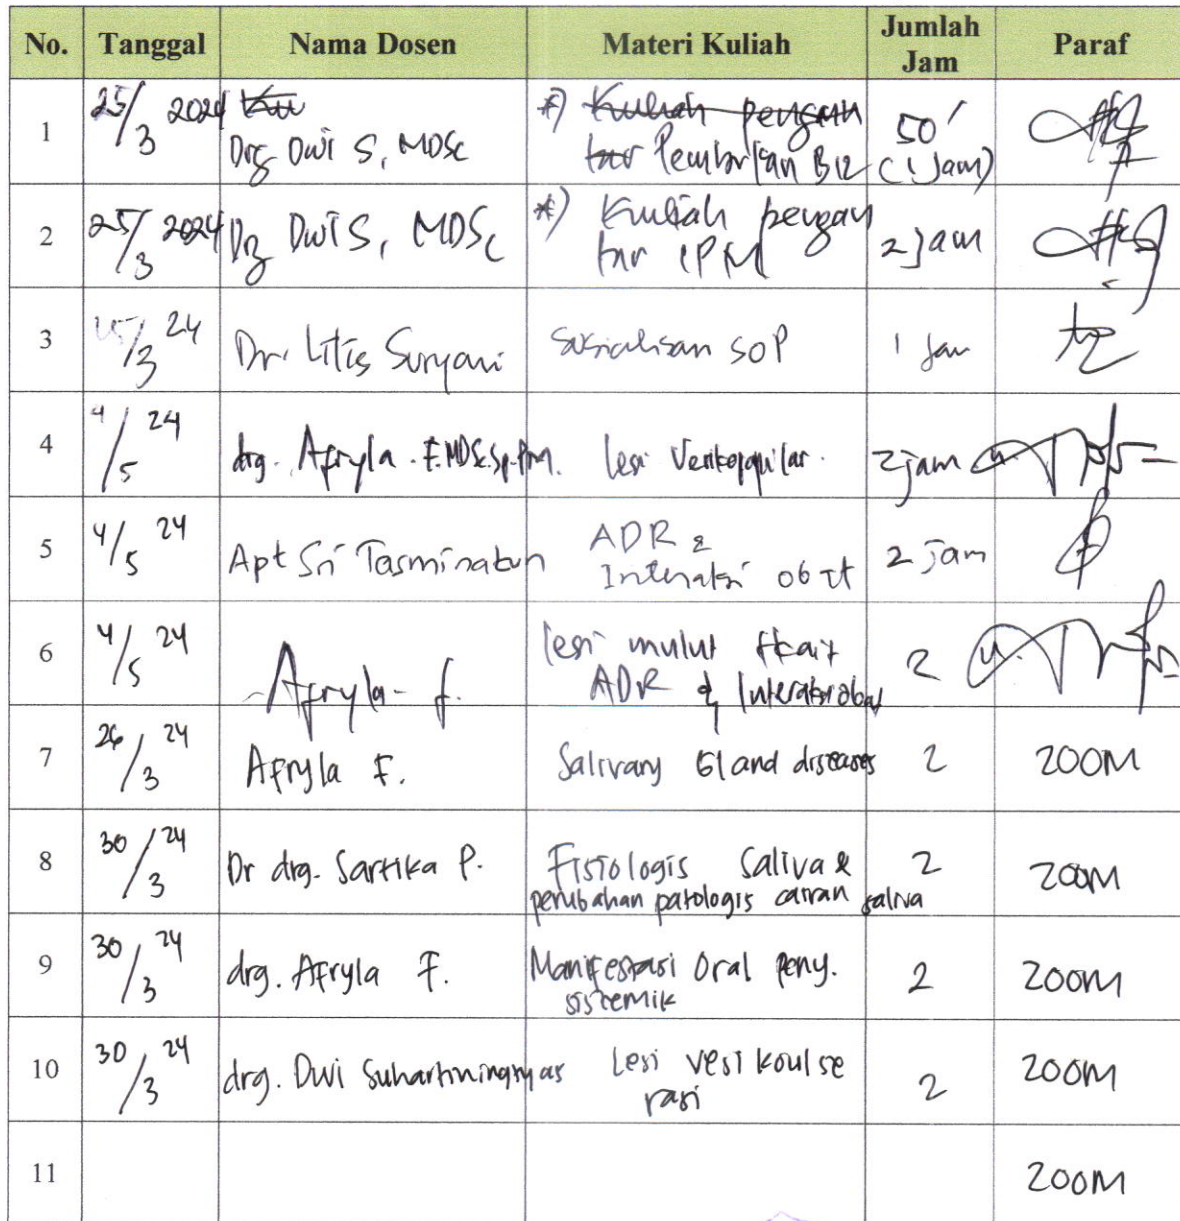 No. Tanggal Nama Dosen Materi Kuliah Jumlah Jam Paraf
1 25/3 2024 Drg Dwi S, MDSc *) Kuliah pengantar Pemberian B12 50' (1 Jam)
2 25/3 2024 Drg Dwi S, MDSc *) Kuliah pengantar IPM 2 jam
3 25/3 24 Dr. Lilis Suryani SOP 1 Jam
4 4/5 24 drg. Afryla F. MDSc.Sp.PM. lesi 2 jam
5 4/5 24 Apt Sri Tasminatun ADR & Interaksi obat 2 jam
6 4/5 24 Afryla - f. lesi mulut tkait ADR & Interaksi obat 2
7 26/3 24 Afryla F. Salivary Gland diseases 2 ZOOM
8 30/3 24 Dr drg. Sartika P. Fisiologis Saliva & perubahan patologis cairan saliva 2 ZOOM
9 30/3 24 drg. Afryla F. Manifestasi Oral Peny. sistemik 2 ZOOM
10 30/3 24 drg. Dwi Suhartiningtyas Lesi vesikoulserasi 2 ZOOM
11 ZOOM